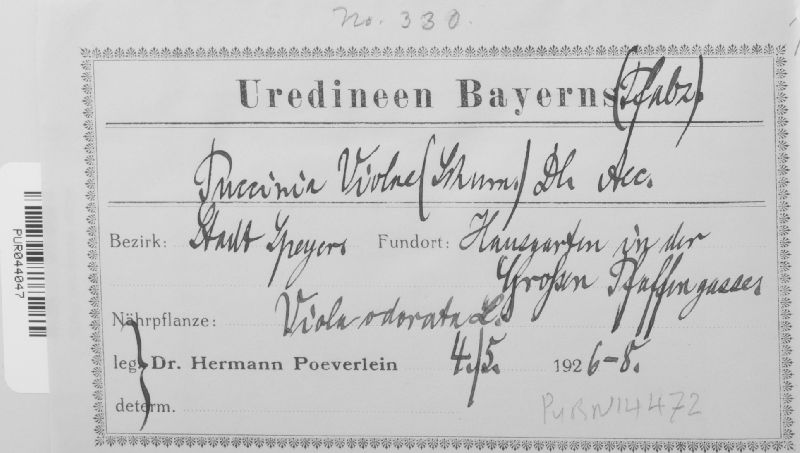 No. 330.
Uredineen Bayerns (Pfalz).
Puccinia Violae (Schum.) DC. Aec.
Bezirk: Stadt Speyer. Fundort: Hausgarten in der
Großen Pfaffengasse.
Nährpflanze: Viola odorata L.
leg. Dr. Hermann Poeverlein 4./5. 1926-8.
determ.
PURN14472
PUR044047